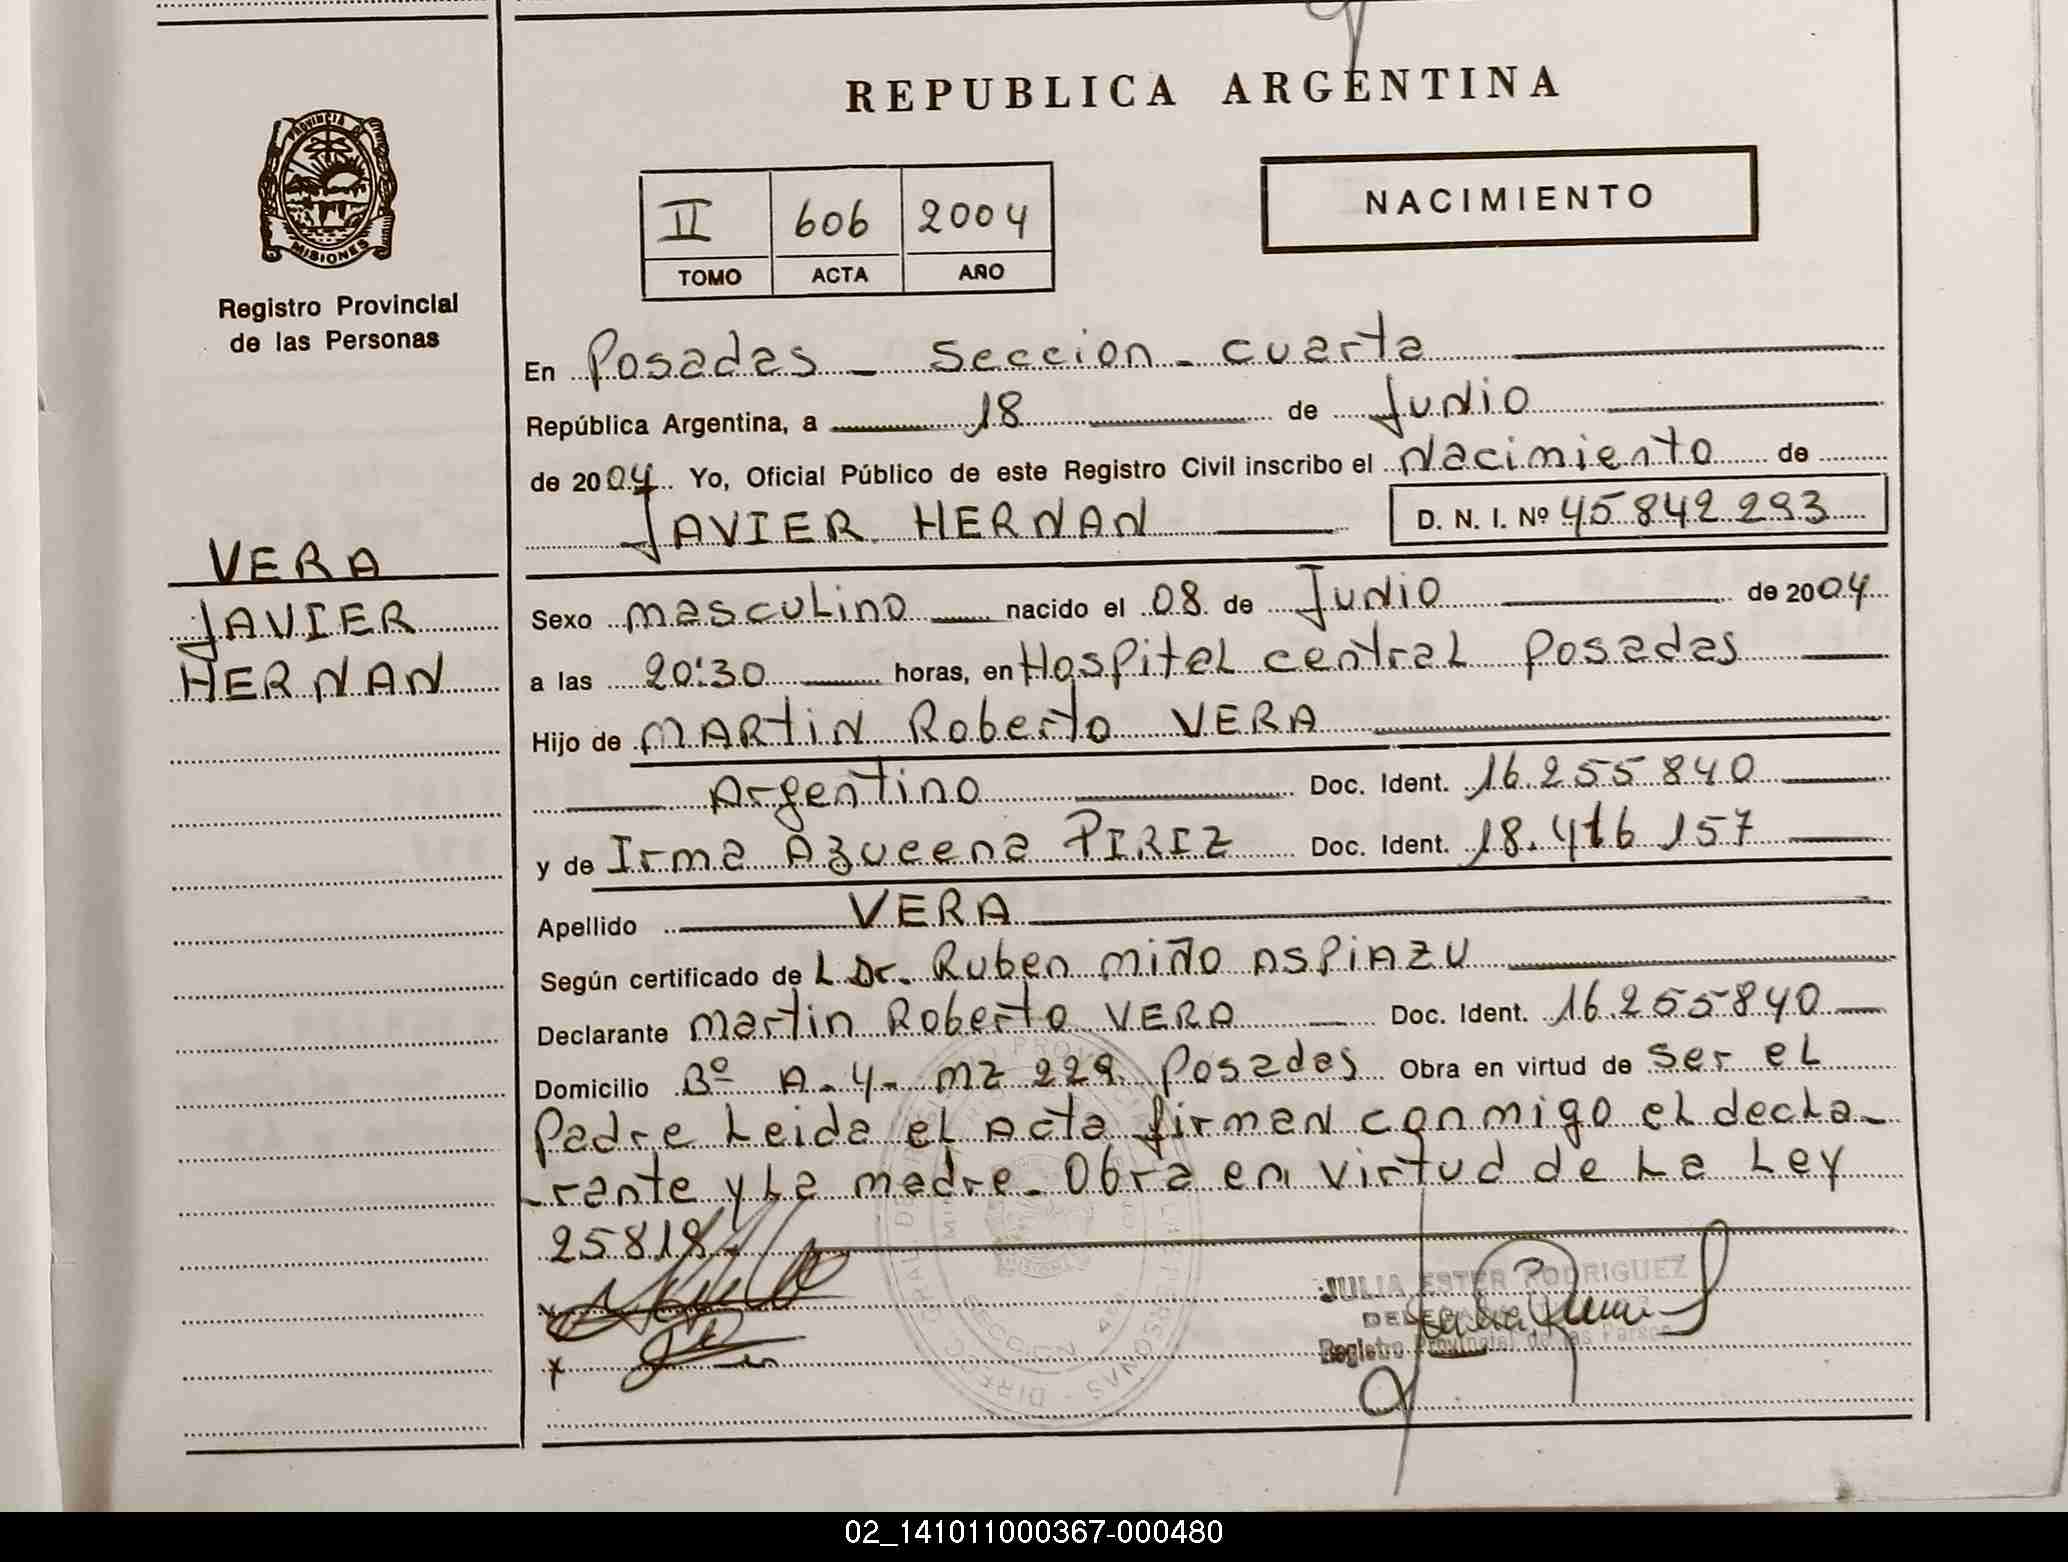 REPUBLICA ARGENTINA
PROVINCIA DE
MISIONES
Registro Provincial
de las Personas
II 606 2004
TOMO ACTA AÑO
NACIMIENTO
En Posadas - Seccion - cuarta
República Argentina, a 18 de Junio
de 2004 Yo, Oficial Público de este Registro Civil inscribo el Nacimiento de
JAVIER HERNAN D. N. I. Nº 45.842.293
VERA
JAVIER
HERNAN
Sexo masculino nacido el 08 de Junio de 2004
a las 20:30 horas, en Hospital central Posadas
Hijo de MARTIN Roberto VERA
Argentino Doc. Ident. 16.255.840
y de Irma Azucena PIREZ Doc. Ident. 18.416.157
Apellido VERA
Según certificado de L Dr. Ruben miño ASPIAZU
Declarante martin Roberto VERA Doc. Ident. 16.255.840
Domicilio Bº A-4- mz 229 Posadas Obra en virtud de ser el
Padre Leida el Acta firman conmigo el decla-
-rante y La madre. Obra en virtud de La Ley
25818
JULIA ESTER RODRIGUEZ
Registro Provincial de las Person
SECCION 4ta
02_141011000367-000480